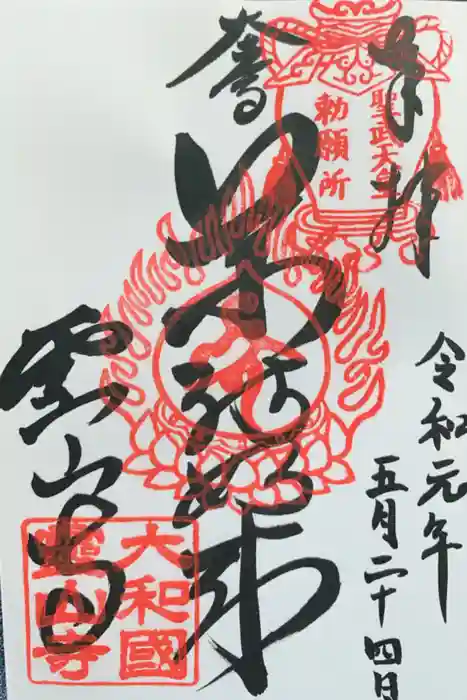 奉拝
聖武天皇
勅願所
令和元年
五月二十四日
薬師如来
霊山寺
大和國
霊山寺